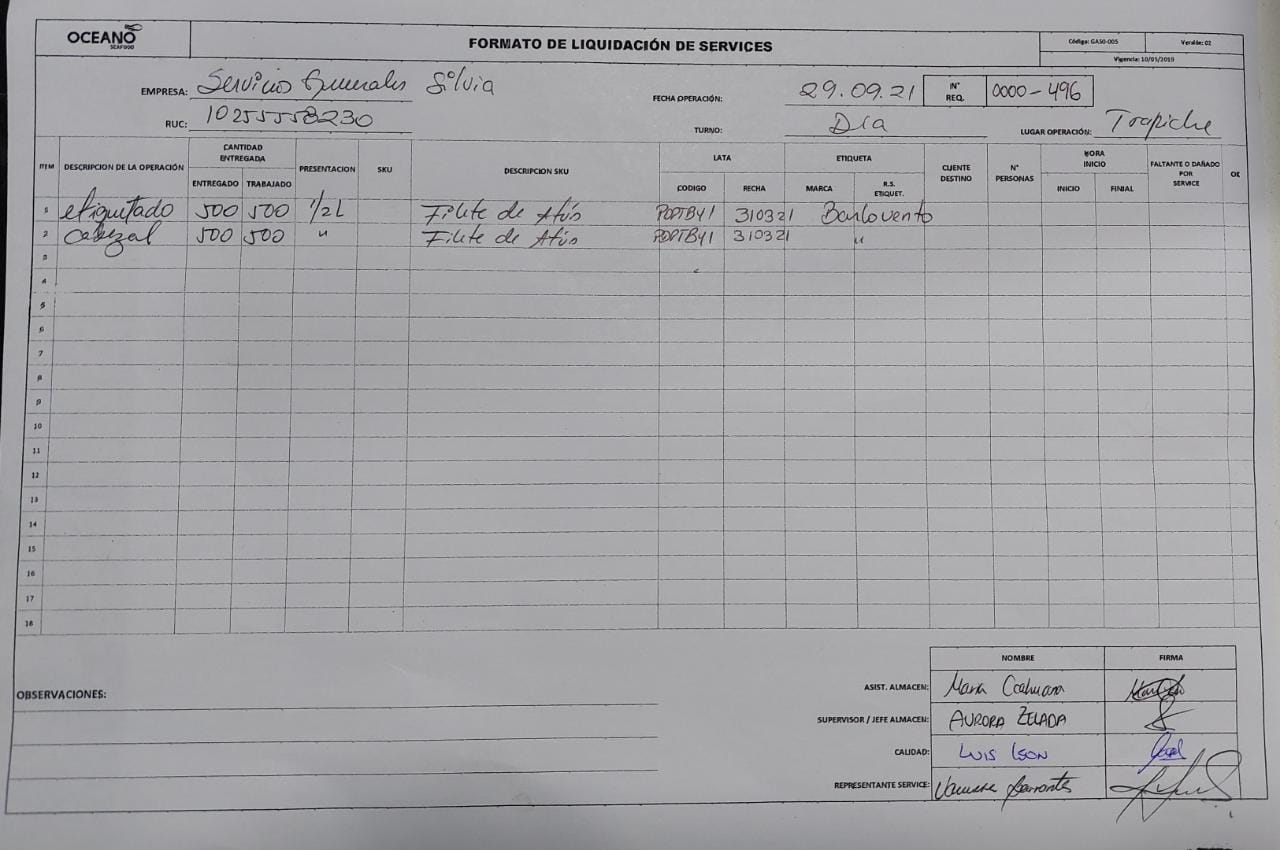 OCEANO SEAFOOD
FORMATO DE LIQUIDACIÓN DE SERVICES
Código: GASO-005
Versión: 02
Vigencia: 10/05/2019
EMPRESA: Servicios Generales Silvia
FECHA OPERACIÓN: 29.09.21
N° REQ. 0000-496
RUC: 10255558230
TURNO: Día
LUGAR OPERACIÓN: Trapiche
ITEM
DESCRIPCION DE LA OPERACIÓN
CANTIDAD ENTREGADA
ENTREGADO TRABAJADO
PRESENTACION
SKU
DESCRIPCION SKU
LATA
CODIGO FECHA
ETIQUETA
MARCA R.S. ETIQUET.
CLIENTE DESTINO
N° PERSONAS
HORA INICIO
INICIO FINIAL
FALTANTE O DAÑADO POR SERVICE
OE
1 etiquetado 500 500 1/2 L Filete de Atún 310321 Barlovento
2 cabezal 500 500 " Filete de Atún 310321 "
3
4
5
6
7
8
9
10
11
12
13
14
15
16
17
18
NOMBRE FIRMA
OBSERVACIONES:
ASIST. ALMACEN: Maria Ccahuana
SUPERVISOR / JEFE ALMACEN: AURORA ZELADA
CALIDAD: LUIS
REPRESENTANTE SERVICE: Barrantes